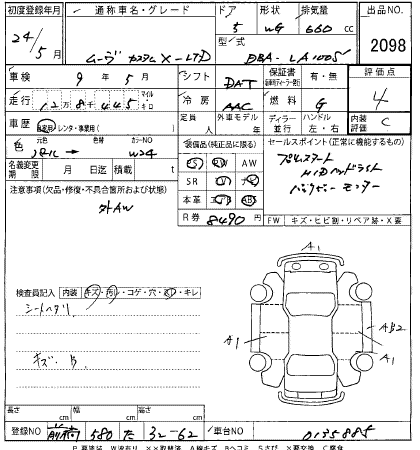 初度登録年月 通称車名・グレード ドア 形状 排気量 出品NO
24/5月 ムーヴ カスタム X-LTD 5 WG 660 cc 2098
型式 DBA-LA100S
車検 9年 5月 シフト DAT 保証書 有・無 評価点
走行 12万8千445 マイル キロ 冷房 AAC 燃料 G 4
車歴 自家用/レンタ・事業用( ) 定員 人 外車モデル 年 ディーラー 並行 ハンドル 左・右 内装評価 C
色 元色 色替 カラーNO
→ W24
名義変更期限 月 日迄 積載 t
装備品(純正品に限る) セールスポイント(機能するもの)
PS PW AW プッシュスタート
SR ナビ HIDヘッドライト
本革 エアB ABS バックモニター
R券 8490 円 FW キズ・ヒビ割・リペア跡・X要
注意事項(欠品・修復・不具合箇所および状態)
外AW
検査員記入 内装 キズ・汚レ・コゲ・穴・スレ・キレ
シートヘタリ
キズ・B
A1
A1 A B2
A1
長さ cm 幅 cm 高さ cm
登録NO 前橋 580 た 32-62 車台NO 0135885